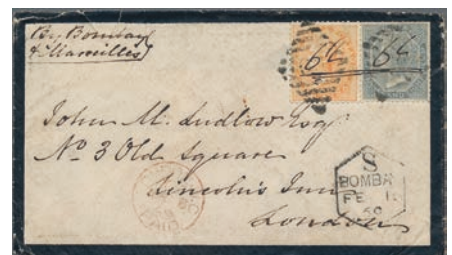 By Bombay
& Marseilles
64 64
John M. Ludlow Esqr
No 3 Old Square
Lincoln's Inn
London
S
BOMBA
FE 11
69